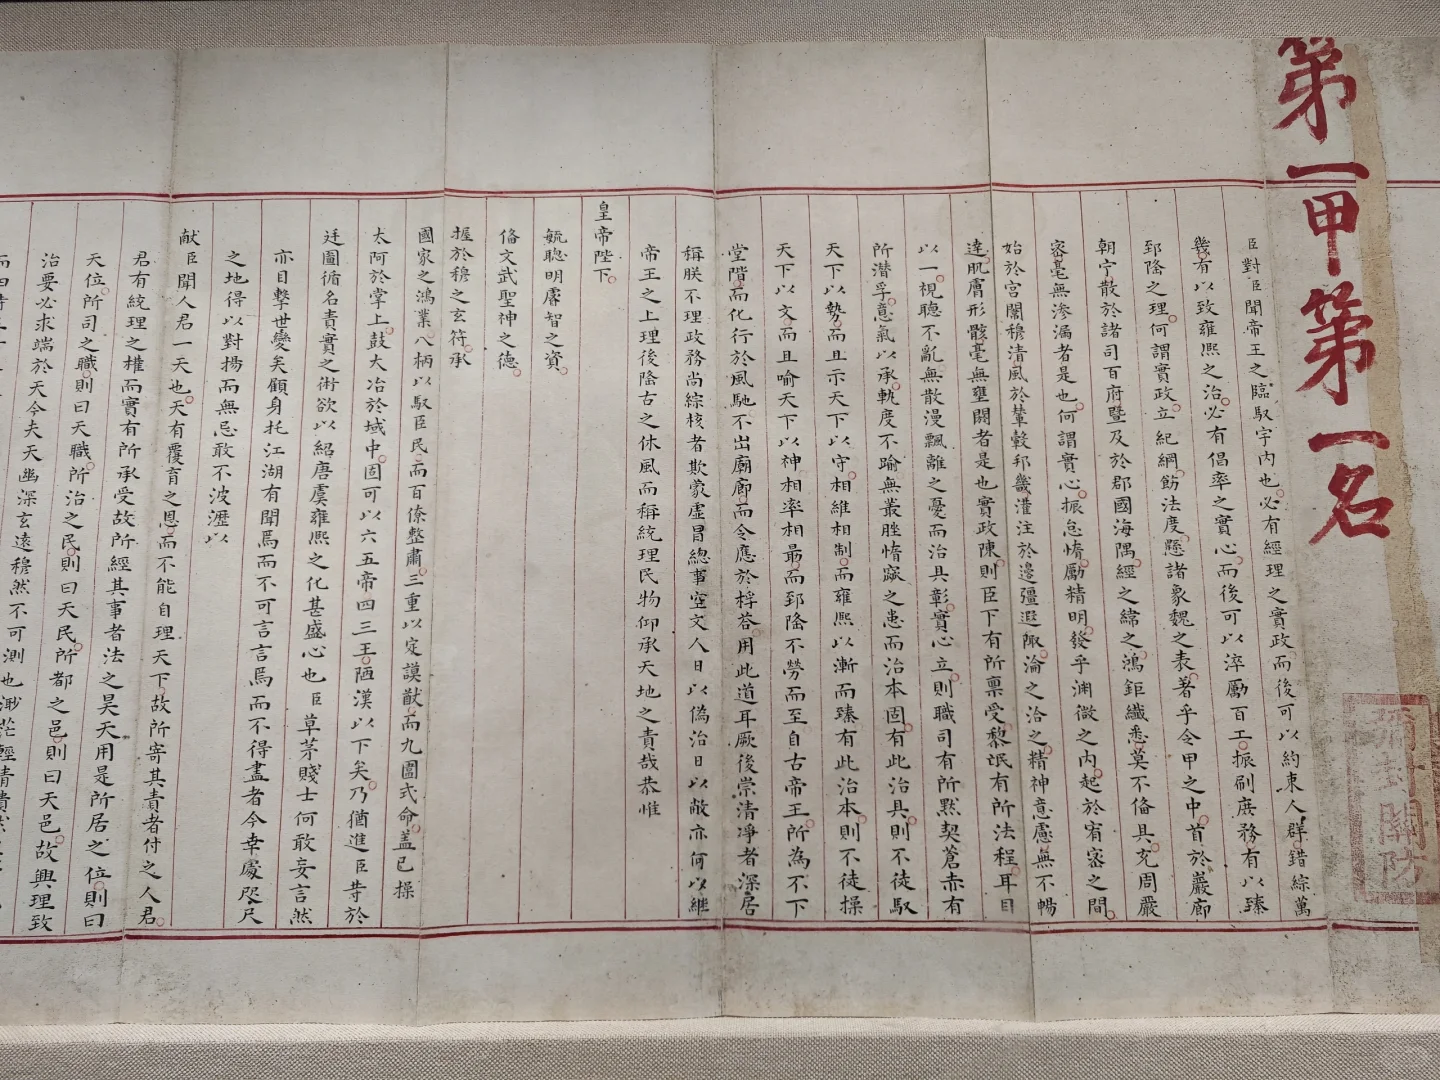 第一甲第一名
彌封關防
臣對臣聞帝王之臨馭宇內也必有經理之實政而後可以約束人群錯綜萬
幾有以致雍熙之治必有倡率之實心而後可以淬勵百工振刷庶務有以臻
郅隆之理何謂實政立紀綱飭法度懸諸象魏之表著乎令甲之中首於巖廊
朝宁散於諸司百府暨及於郡國海隅經之緯之鴻鉅纖悉莫不俻具充周嚴
密毫無滲漏者是也何謂實心振怠惰勵精明發乎淵微之內起於宥密之間
始於宮闈穆清風於輦轂邦畿灌注於邊疆遐陬淪之洽之精神意慮無不暢
達肌膚形骸毫無壅閼者是也實政陳則臣下有所稟受黎氓有所法程耳目
以一視聽不亂無散漫飄離之憂而治具彰實心立則職司有所默契蒼赤有
所潛孚意氣以承軌度不踰無叢脞惰窳之患而治本固有此治具則不徒馭
天下以勢而且示天下以守相維相制而雍熙以漸而臻有此治本則不徒操
天下以文而且喻天下以神相率相最而郅隆不勞而至自古帝王所為不下
堂階而化行於風馳不出廟廊而令應於桴荅用此道耳厥後崇清凈者深居
稱朕不理政務尚綜核者欺蒙虛冒總事空文人日以偽治日以敝亦何以維
帝王之上理後隆古之休風而稱統理民物仰承天地之責哉恭惟
皇帝陛下
毓聰明睿智之資
俻文武聖神之德
握於穆之玄符承
國家之鴻業八柄以馭臣民而百僚整肅三重以定謨猷而九圍式命蓋已操
太阿於掌上鼓大冶於域中固可以六五帝四三王陋漢以下矣乃猶進臣等於
廷圖循名責實之術欲以紹唐虞雍熙之化甚盛心也臣草茅賤士何敢妄言然
亦目擊世變矣顧身托江湖有聞焉而不可言言焉而不得盡者今幸處咫尺
之地得以對揚而無忌敢不波瀝以
献臣聞人君一天也天有覆育之恩而不能自理天下故所寄其責者付之人君
君有統理之權而實有所承受故所經其事者法之昊天用是所居之位則曰
天位所司之職則曰天職所治之民則曰天民所都之邑則曰天邑故興理致
治要必求端於天今夫天幽深玄遠穆然不可測也渺茫輕清